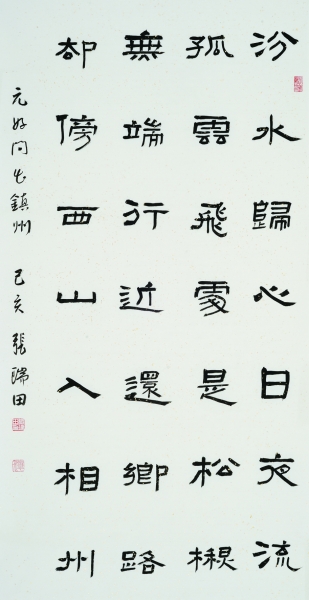 汾水歸心日夜流
孤雲飛處是松楸
無端行近還鄉路
却傍西山入相州
元好問出鎮州 己亥 張瑞田